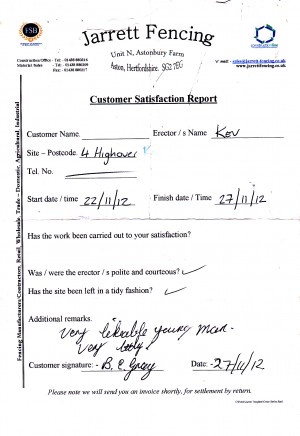 FSB
Jarrett Fencing
Unit N, Astonbury Farm
Aston, Hertfordshire. SG2 7EG
Construction/Office - Tel:
Material Sales - Tel:
Fax:
www.jarrettfencing.co.uk
Customer Satisfaction Report
Customer Name. Erector / s Name Kev
Site – Postcode. 4 Highover
Tel. No.
Start date / time 22/11/12 Finish date / Time 27/11/12
Has the work been carried out to your satisfaction?
Was / were the erector / s polite and courteous? ✓
Has the site been left in a tidy fashion? ✓
Additional remarks.
very likeable young man.
very tidy.
Customer signature: - B. E. Gray Date: - 27/11/12
Please note we will send you an invoice shortly, for settlement by return.
Fencing Manufacturers/Contractors, Retail, Wholesale, Trade – Domestic, Agricultural, Industrial